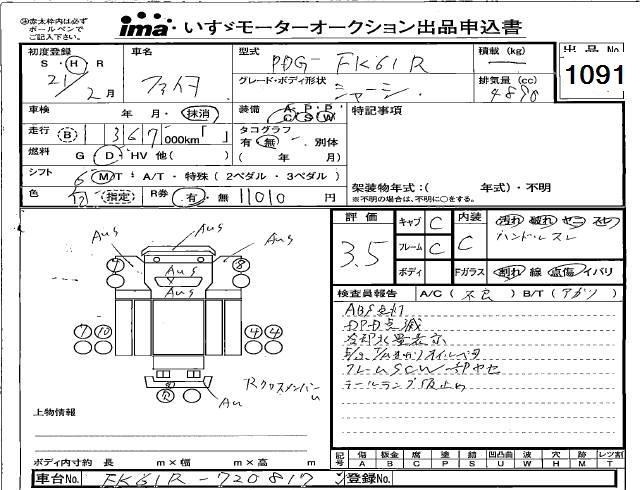 ※赤太枠内は必ずボールペンでご記入下さい。
ima いすゞモーターオークション出品申込書
初度登録 S・H・R 21/2月
車名 ファイタ
型式 PDG-FK61R
積載 (kg)
出品No 1091
グレード・ボディ形状 シャーシ
排気量(cc) 4890
車検 年 月・抹消
装備 A・P・P C・S・W
特記事項
走行 B 1 367 000km「 」
タコグラフ 有・無・別体 ( 年 月)
燃料 G D・HV 他( )
シフト 6 MT・A/T・特殊(2ペダル・3ペダル)
架装物年式:( 年式)・不明
※不明の場合は、不明に○をする。
色 白 指定
R券 有・無 11010 円
評価 3.5
キャブ C
フレーム C
ボディ
内装 C
Fガラス
汚れ 破れ ヤニ スレ
ハンドルスレ
割れ 線 点傷 イバリ
検査員報告 A/C(不良) B/T(アガリ)
ABS点灯
DPD点滅
冷却水量表示
フレームSCW部サビ
テールランプ
AuS
AuS
AuS
AuS
AuS
7
8
7 10
4 4
Rクロスメンバー
Au
上物情報
ボディ内寸約 長 m×幅 m×高 m
記号 傷A 板金B 腐C 塗P 錆S 凹凸曲U 波W 穴H 跡M レンズ割T
車台No. FK61R-720817
登録No.